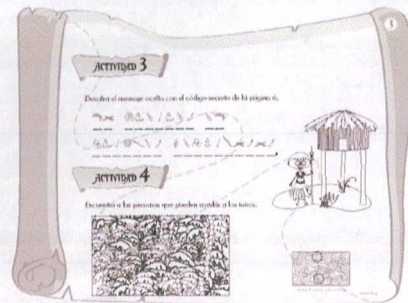 ACTIVIDAD 3
Descifra el mensaje oculto con el código secreto de la página 6.
ACTIVIDAD 4
Encuentra a las personas que pueden ayudar a los niños.